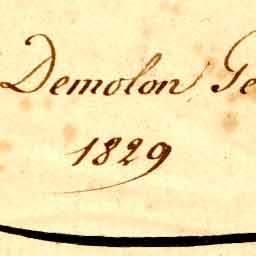 Demolon Ge
1829